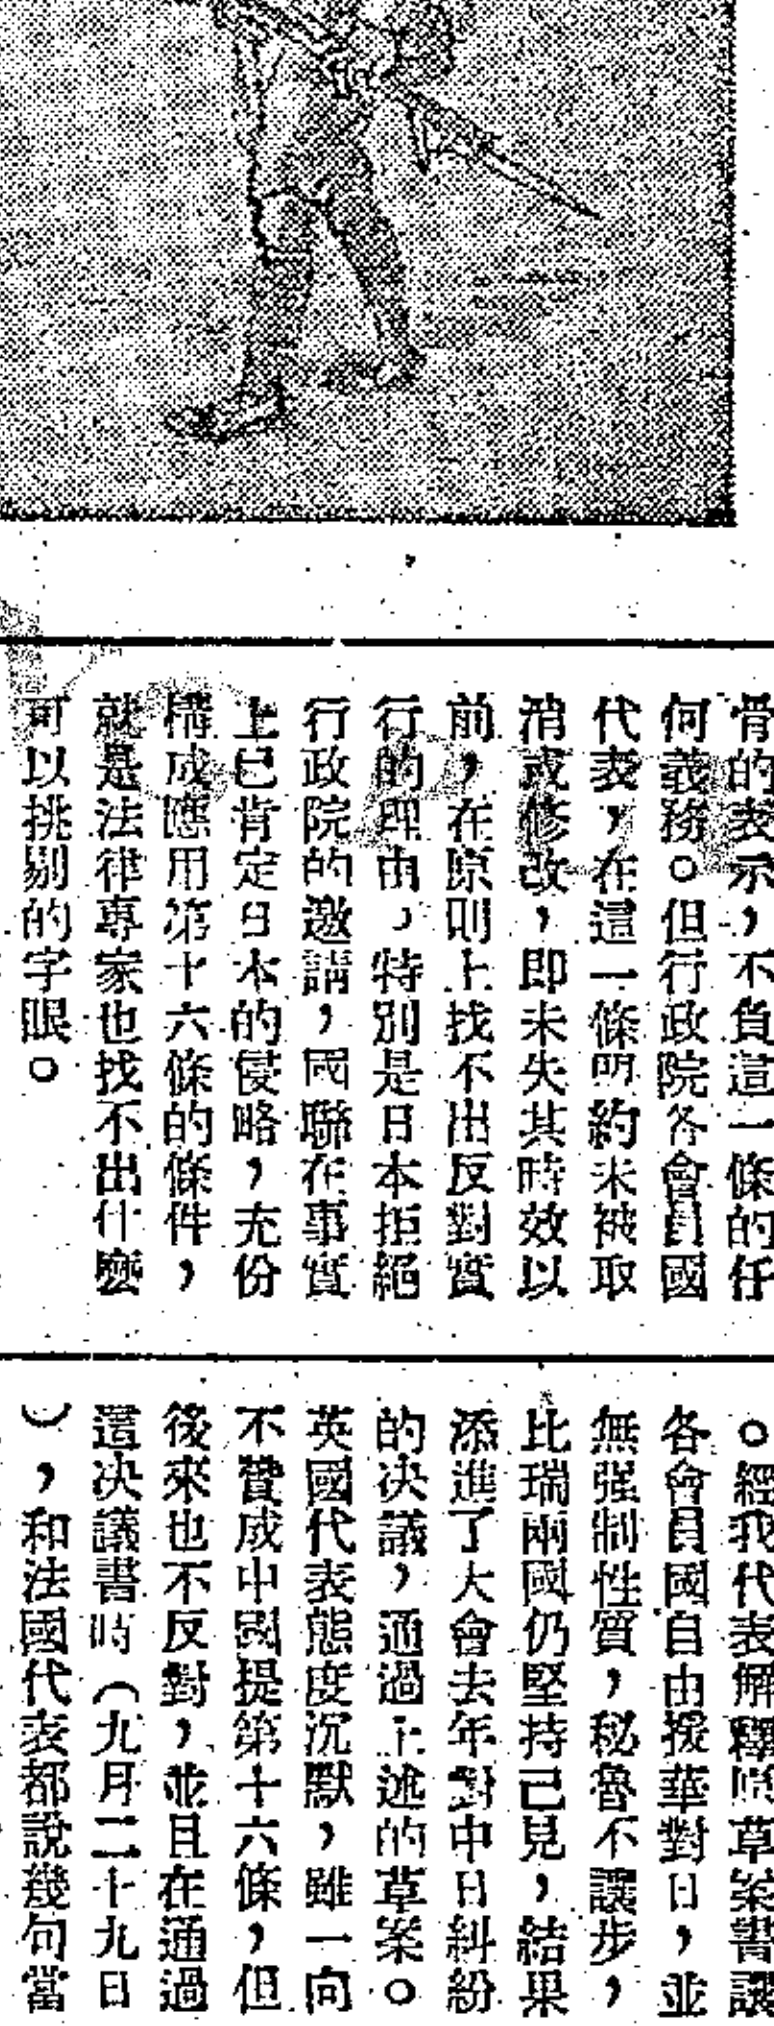 骨的表示，不負這一條的任
何義務。但行政院各會員國
代表，在這一條明約未被取
消或修改，即未失其時效以
前，在原則上找不出反對實
行的理由，特別是日本拒絕
行政院的邀請，國聯在事實
上已肯定日本的侵略，充份
構成應用第十六條的條件，
就是法律專家也找不出什麼
可以挑剔的字眼。
。經我代表解釋原草案書讓
各會員國自由援華對日，並
無强制性質，秘魯不讓步，
比瑞兩國仍堅持己見，結果
添進了大會去年對中日糾紛
的决議，通過上述的草案。
英國代表態度沉默，雖一向
不贊成中國提第十六條，但
後來也不反對，並且在通過
這决議書時（九月二十九日
），和法國代表都說幾句當